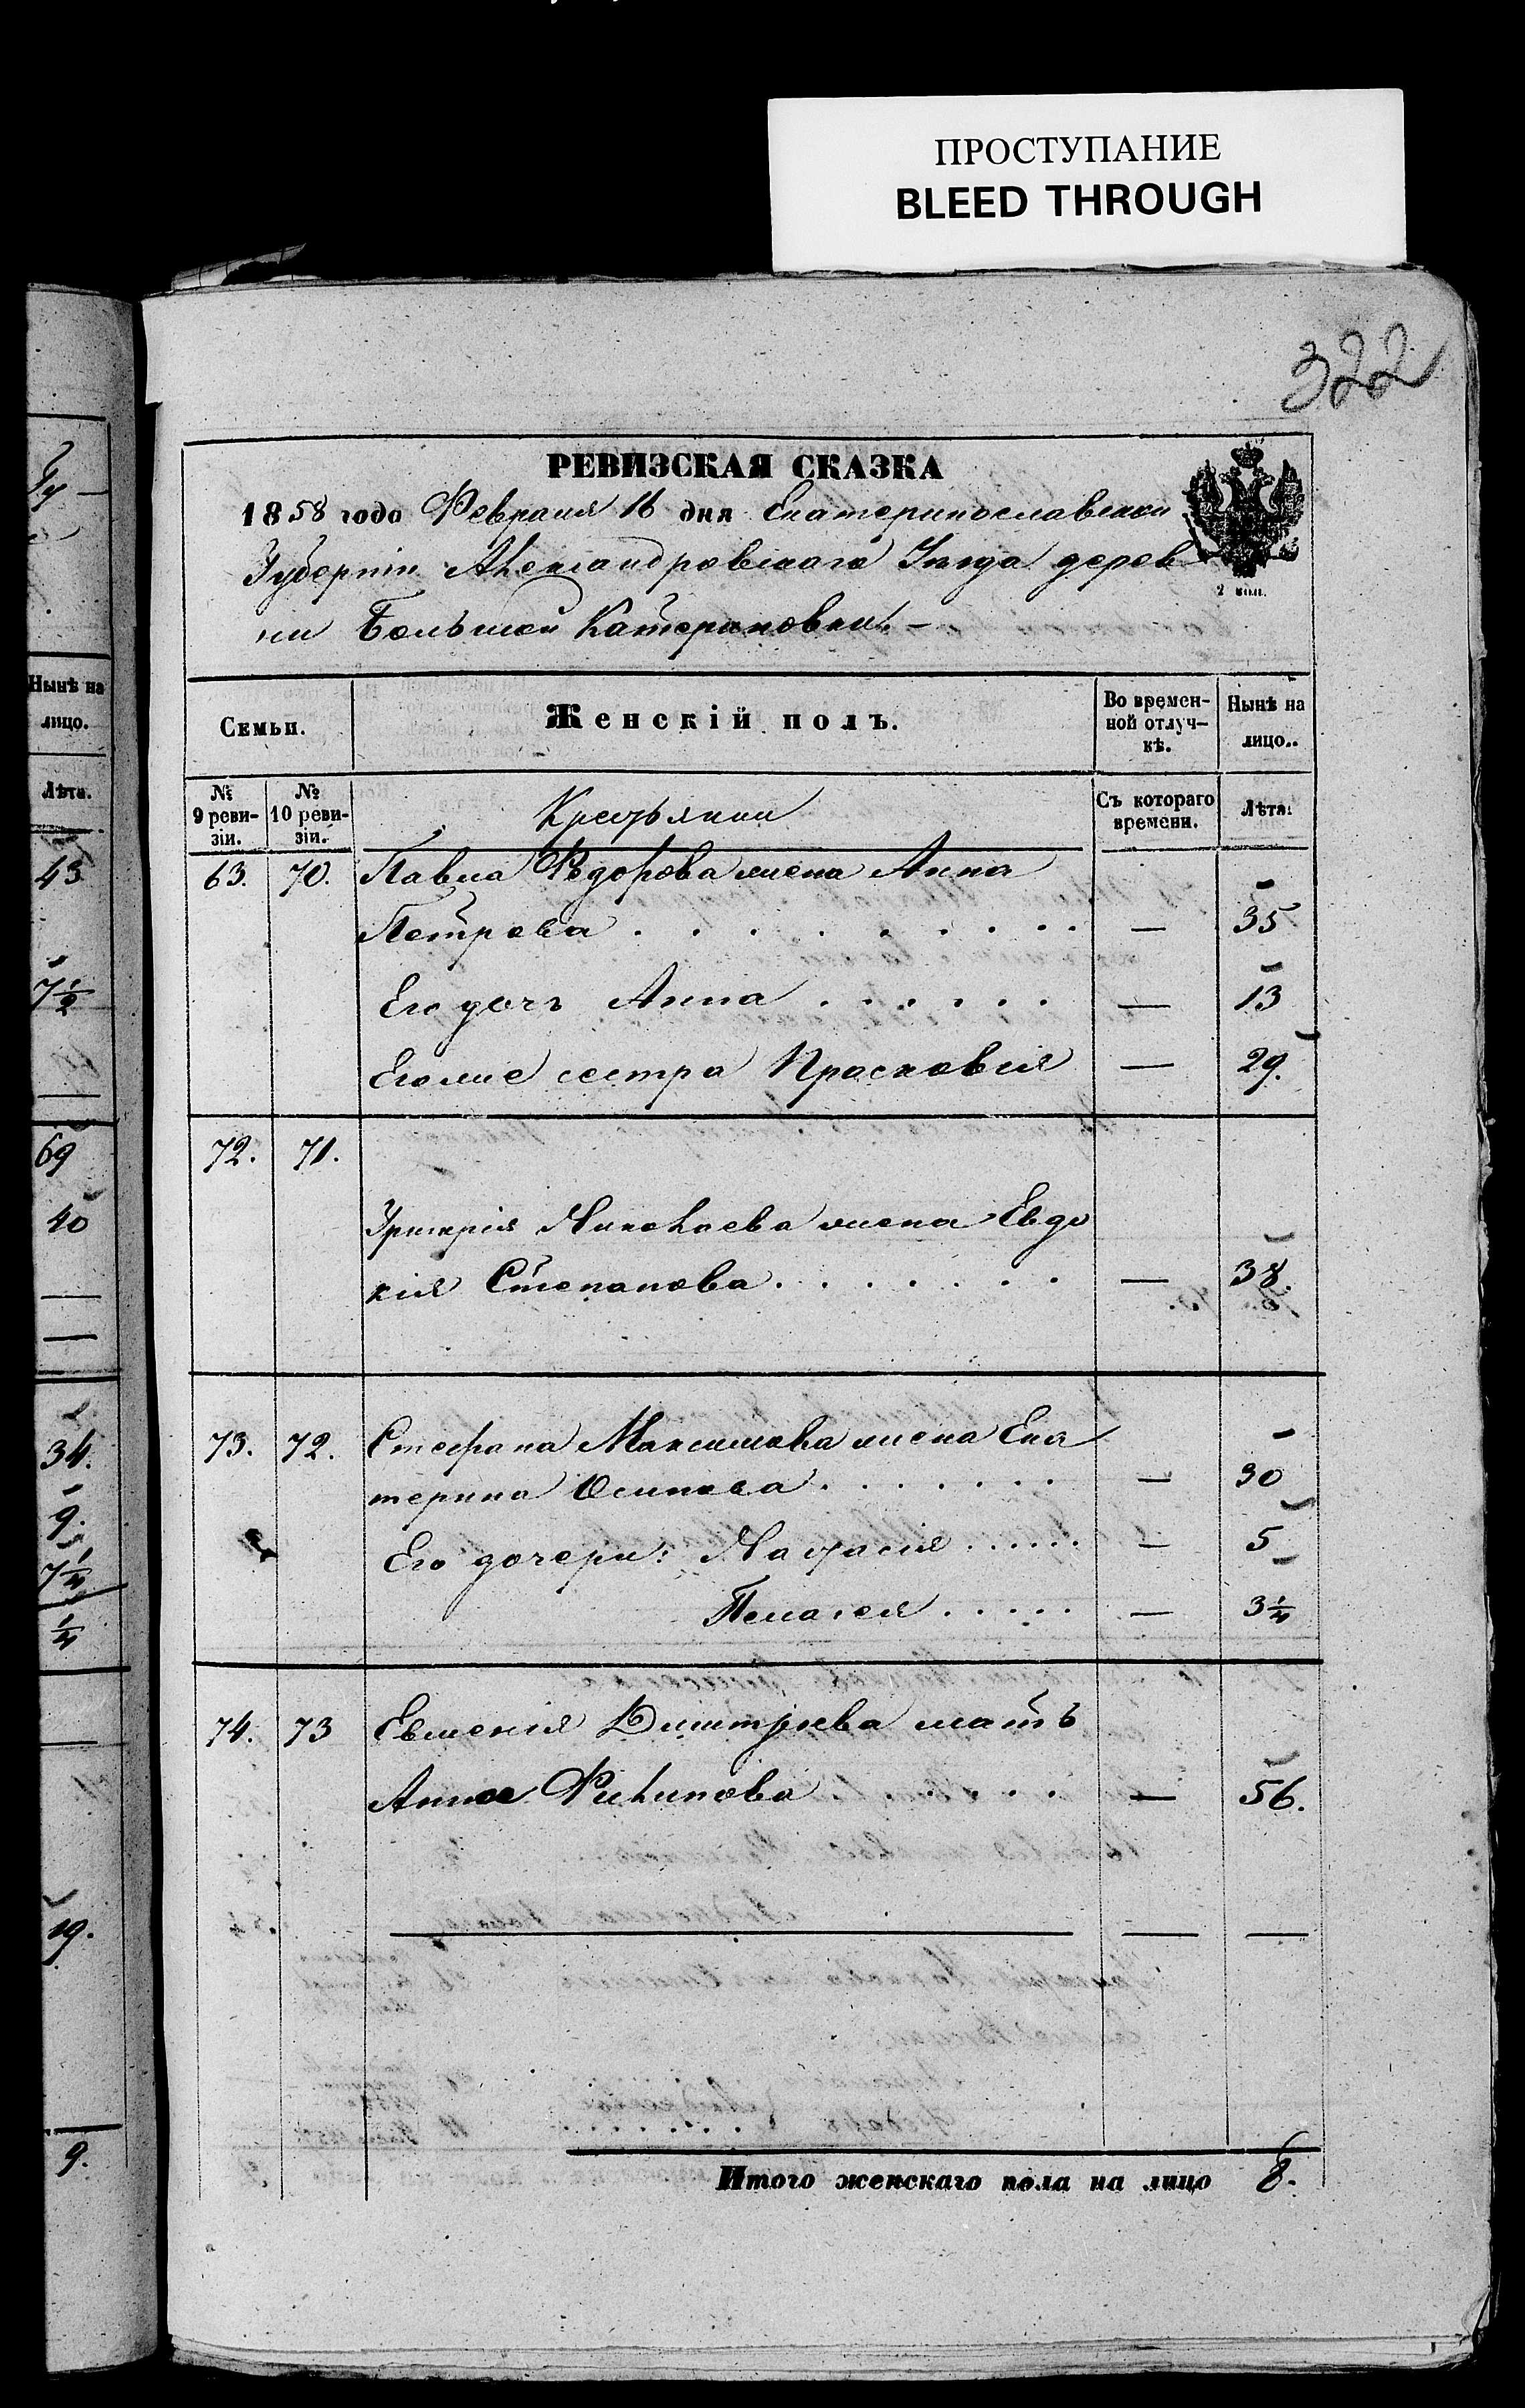 ПРОСТУПАНИЕ
BLEED THROUGH
322
РЕВИЗСКАЯ СКАЗКА
1858 года Февраля 16 дня Екатеринославской
Губерніи Александровскаго Уѣзда дерев
ни Большой Катериновки. —
2 коп.
Семьи.
Женскій полъ.
Во времен-
ной отлуч-
кѣ.
Нынѣ на
лицо..
№ 9 реви-
зіи.
№ 10 реви-
зіи.
Крестьянки
Съ котораго
времени.
Лѣта.
63. 70. Павла Федорова жена Анна
Петрова . . . . . . . . — 35
Его дочь Анна . . . . . . — 13
Его же сестра Прасковія — 29.
72. 71.
Григорія Николаева жена Евдо
кія Степанова . . . . . . — 38.
73. 72. Стефана Максимова жена Ека
терина Осипова . . . . . . — 30
Его дочери: Настасія . . . . . . — 5
Пелагея . . . . . — 3 1/4
74. 73 Евменія Димитріева мать
Анна Филипова . . . . . — 56.
Итого женскаго пола на лицо 8.
Нынѣ на
лицо.
Лѣта.
43
7 1/2
69
40
34.
9.
7 1/4
1/4
19.
9.